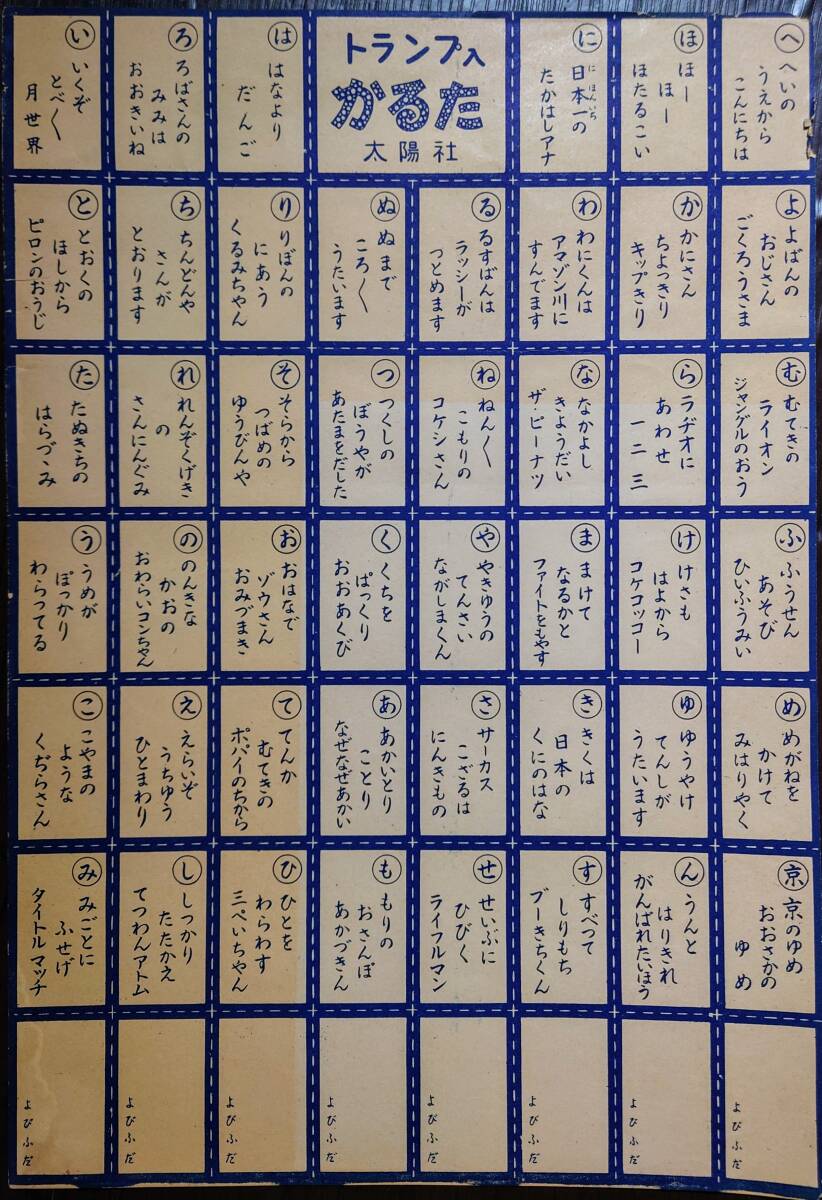 い
いくぞ
とべ〱
月世界
ろ
ろばさんの
みみは
おおきいね
は
はなより
だんご
トランプ入
かるた
太陽社
に
日本一の
にほんいち
たかはしアナ
ほ
ほー
ほー
ほたるこい
へ
へいの
うえから
こんにちは
と
とおくの
ほしから
ピロンのおうじ
ち
ちんどんや
さんが
とおります
り
りぼんの
にあう
くるみちゃん
ぬ
ぬまで
ころ〱
うたいます
る
るすばんは
ラッシーが
つとめます
わ
わにくんは
アマゾン川に
すんでます
か
かにさん
ちよっきり
キップきり
よ
よばんの
おじさん
ごくろうさま
た
たぬきちの
はらづゝみ
れ
れんぞくげき
の
さんにんぐみ
そ
そらから
つばめの
ゆうびんや
つ
つくしの
ぼうやが
あたまをだした
ね
ねん〱
こもりの
コケシさん
な
なかよし
きようだい
ザ・ピーナツ
ら
ラヂオに
あわせ
一二三
む
むてきの
ライオン
ジャングルのおう
う
うめが
ぽっかり
わらってる
の
のんきな
かおの
おわらいコンちゃん
お
おはなで
ゾウさん
おみづまき
く
くちを
ぱっくり
おおあくび
や
やきゆうの
てんさい
ながしまくん
ま
まけて
なるかと
ファイトをもやす
け
けさも
はよから
コケコッコー
ふ
ふうせん
あそび
ひいふうみい
こ
こやまの
ような
くぢらさん
え
えらいぞ
うちゆう
ひとまわり
て
てんか
むてきの
ポパイのちから
あ
あかいとり
ことり
なぜなぜあかい
さ
サーカス
こざるは
にんきもの
き
きくは
日本の
くにのはな
ゆ
ゆうやけ
てんしが
うたいます
め
めがねを
かけて
みはりやく
み
みごとに
ふせげ
タイトルマッチ
し
しっかり
たたかえ
てつわんアトム
ひ
ひとを
わらわす
三ぺいちゃん
も
もりの
おさんぽ
あかづきん
せ
せいぶに
ひびく
ライフルマン
す
すべって
しりもち
ブーきちくん
ん
うんと
はりきれ
がんばれたいほう
京
京のゆめ
おおさかの
ゆめ
よびふだ
よびふだ
よびふだ
よびふだ
よびふだ
よびふだ
よびふだ
よびふだ